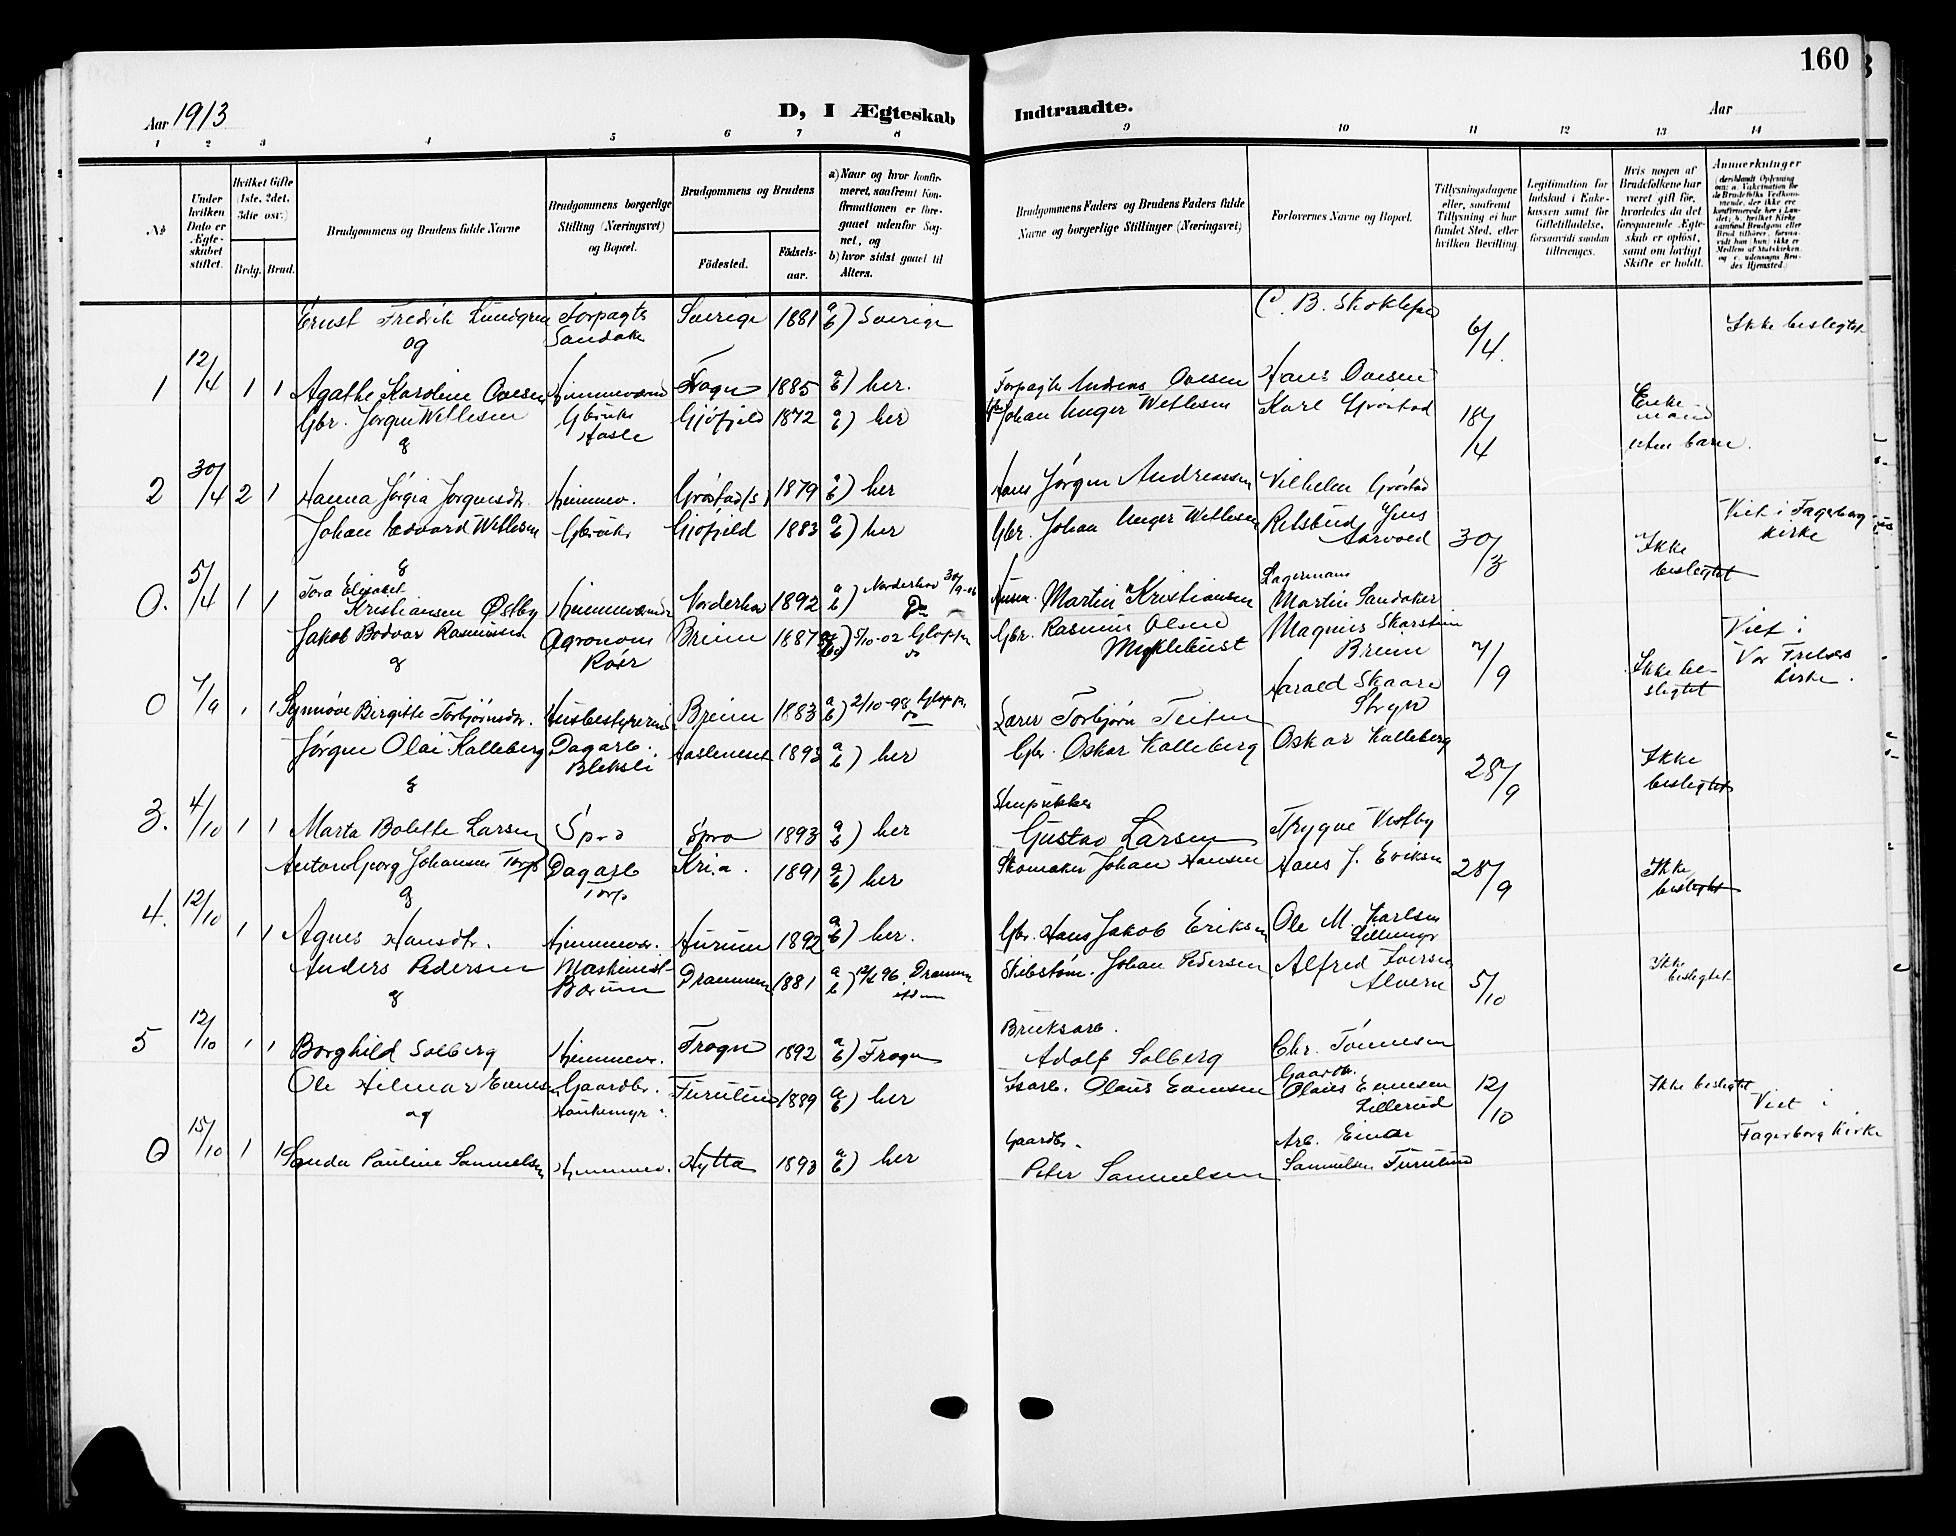 160
Aar 1913
D, I Ægteskab Indtraadte.
Aar
1 2 3 4 5 6 7 8 9 10 11 12 13 14
No
Under hvilken Dato er Ægteskabet stiftet.
Hvilket Gifte (1ste, 2det, 3die osv.)
Brdg. Brud.
Brudgommens og Brudens fulde Navne
Brudgommens borgerlige Stilling (Næringsvei) og Bopæl.
Brudgommens og Brudens
Fødested.
Fødselsaar.
a) Naar og hvor konfirmeret, saafremt Konfirmationen er foregaaet udenfor Sognet, og
b) hvor sidst gaaet til Alters.
Brudgommens Faders og Brudens Faders fulde Navne og borgerlige Stillinger (Næringsvei)
Forlovernes Navne og Bopæl.
Tillysningsdagene eller, saafremt Tillysning ei har fundet Sted, efter hvilken Bevilling.
Legitimation for Indskud i Enkekassen samt for Giftetilladelse, forsaavidt saadan tiltrænges.
Hvis nogen af Brudefolkene har været gift før, hvorledes da det foregaaende Ægteskab er opløst, samt om lovligt Skifte er holdt.
Anmerkninger
Ernst Fredrik Lundgren Forpagter Sverige 1881 a b) Sverige C. B. Skoklefald 6/4. Ikke beslegtet
og Sandaker
1 12/4 1 1 Agathe Karoline Ovesen Hjemmeværend Frogn 1885 a b) her. Forpagter Andreas Ovesen Hans Ovesen
Gbr. Jørgen Wetlesen Gbruker Gjøfjeld 1872 a) her Johan Unger Wetlesen Karl Grøstad 18/4 Enkemand
& Hasle uten barn.
2 30/4 2 1 Hanna Jørgia Jørgensdtr. Hjemmev. Grøstad 1879 a b) her Hans Jørgen Andreassen Vilhelm Grøstad
Johan Edvard Wetlesen Gbruker Gjøfjeld 1883 a b) her Gbr. Johan Unger Wetlesen Retsbud Jens Aarvold 30/3 Ikke beslegtet Viet i Fagerborg kirke
&
0. 5/4 1 1 Tora Elisabet Kristiansen Østby Hjemmeværende Norderhov 1892 a b) Norderhov Do Martin Kristiansen Lagermann Martin Sandaker
Jakob Bodvar Rasmussen Agronom Breim 1887 a b) 5/10-02 Gloppen do Gbr. Rasmus Olsen Myklebust Magnus Skarstein Breim 7/9 Ikke beslegtet Viet i Vor Frelsers kirke.
& Røer
0 7/9 1 1 Synnøve Birgitte Torbjørnsdtr. Husbestyrerinde Breim 1883 a b) 2/10-98 Gloppen do Lærer Torbjørn Teiten Harald Skaare Stryn
Jørgen Olai Kalleberg Dagarb. 1893 a b) her Gbr. Oskar Kalleberg Oskar Kalleberg 28/9 Ikke beslegtet
& Bleksli
3. 4/10 1 1 Marta Bolette Larsen Spro Spro 1893 a b) her Stenpukker Gustav Larsen Trygve Vestby
Anton Georg Johansen Torp Dagarb Torp Kri.a. 1891 a b) her Skomaker Johan Hansen Hans J. Eriksen 28/9 Ikke beslegtet
&
4. 12/10 1 1 Agnes Hansdtr. Hjemmevær. Hurum 1892 a b) her. Gbr. Hans Jakob Eriksen Ole M. Karlsen Lillemyr
Anders Pedersen Maskinist Bærum Drammen 1881 a b) 96 Drammen Skibstøm. Johan Pedersen Alfred Iversen Alvern 5/10 Ikke beslegtet
&
5 12/10 1 1 Borghild Solberg Hjemmev. Frogn 1892 a b) Frogn Bruksarb. Adolf Solberg Chr. Tønnesen
Ole Hilmar Evensen Gaardbr. Haukemyr Furulund 1889 a b) her Isarb. Olaus Evensen Gaardbr. Olaus Evensen Lillerud 12/10 Ikke beslegtet Viet i Fagerborg Kirke
og
0 15/10 1 1 Pauline Samuelsen Hjemmev. Hytta 1893 a b) her Gaardbr. Peter Samuelsen Arb. Einar Samuelsen Furulund